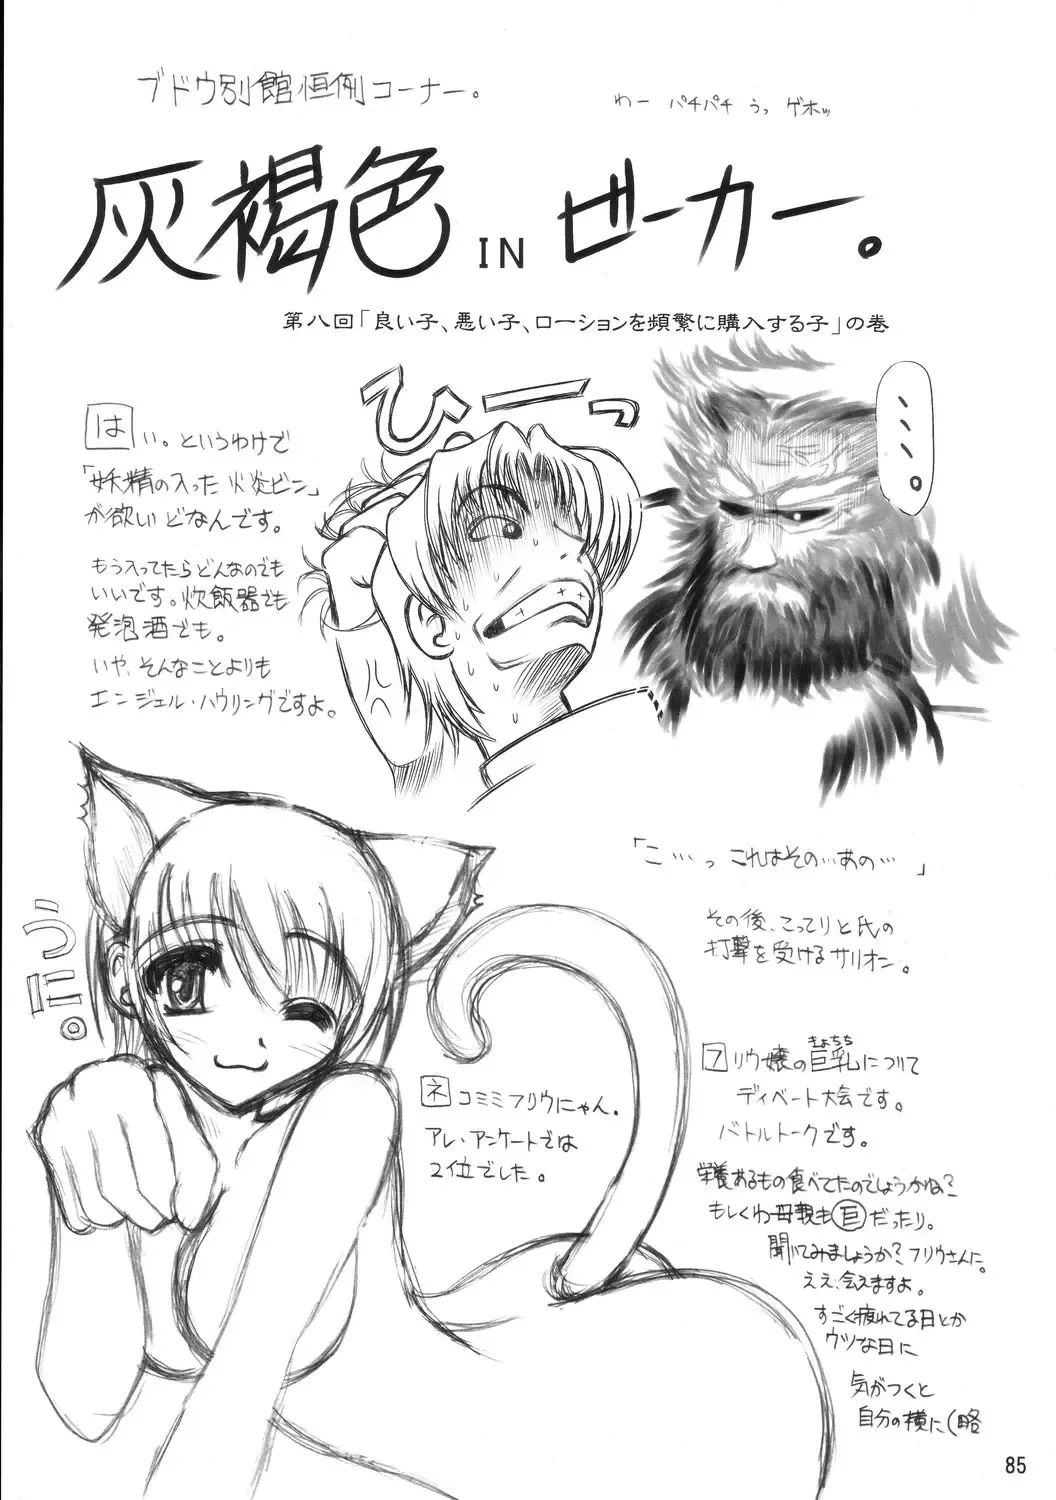 ブドウ別館恒例コーナー。
わー パチパチ うっ ゲホッ
灰褐色 IN ビーカー。
第八回「良い子、悪い子、ローションを頻繁に購入する子」の巻
はい。というわけで
「妖精の入った火炎ビン」
が欲しいどなんです。
もう入ってたらどんなのでも
いいです。炊飯器でも
発泡酒でも。
いや、そんなことよりも
エンジェル・ハウリングですよ。
ひーっ
、、、、。
「こ…っ これはその…あの…」
その後、こってりと氏の
打撃を受けるサリオン。
うに。
ネコミミフリウにゃん。
アレ・アンケートでは
2位でした。
フリウ嬢の巨乳について
きょちち
ディベート大会です。
バトルトークです。
栄養あるもの食べてたのでしょうかね?
もしくわ母親も巨だったり。
聞いてみましょうか?フリウさんに。
ええ、会えますよ。
すごく疲れてる日とか
ウツな日に
気がつくと
自分の横に(略
85